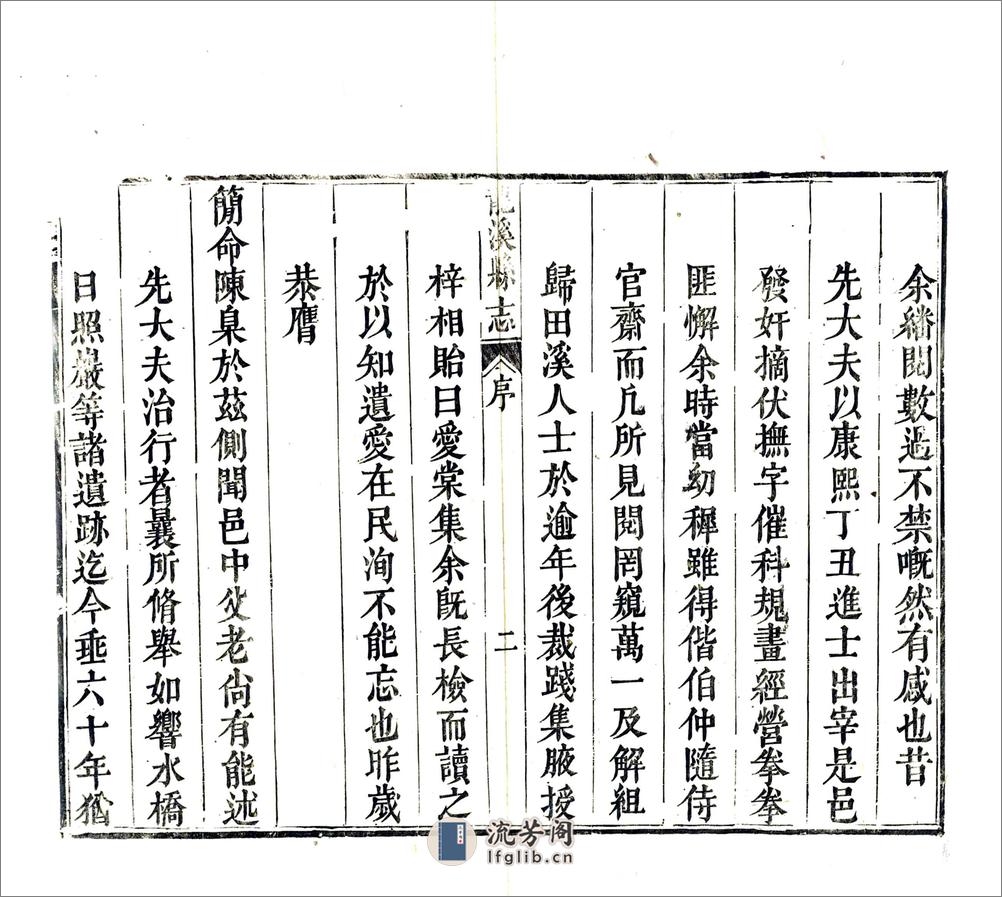 余繙閱數過不禁嘅然有感也昔
先大夫以康熙丁丑進士出宰是邑
發奸摘伏撫字催科規畫經營拳拳
匪懈余時當幼穉雖得偕伯仲隨侍
官齋而凡所見閱罔窺萬一及解組
歸田溪人士於逾年後裁踐集腋授
龍溪縣志 序 二
梓相貽曰愛棠集余旣長檢而讀之
於以知遺愛在民洵不能忘也昨歲
恭膺
簡命陳臬於茲側聞邑中父老尙有能述
先大夫治行者曩所脩舉如響水橋
日照巖等諸遺跡迄今垂六十年猶
流芳阁
lfglib.cn